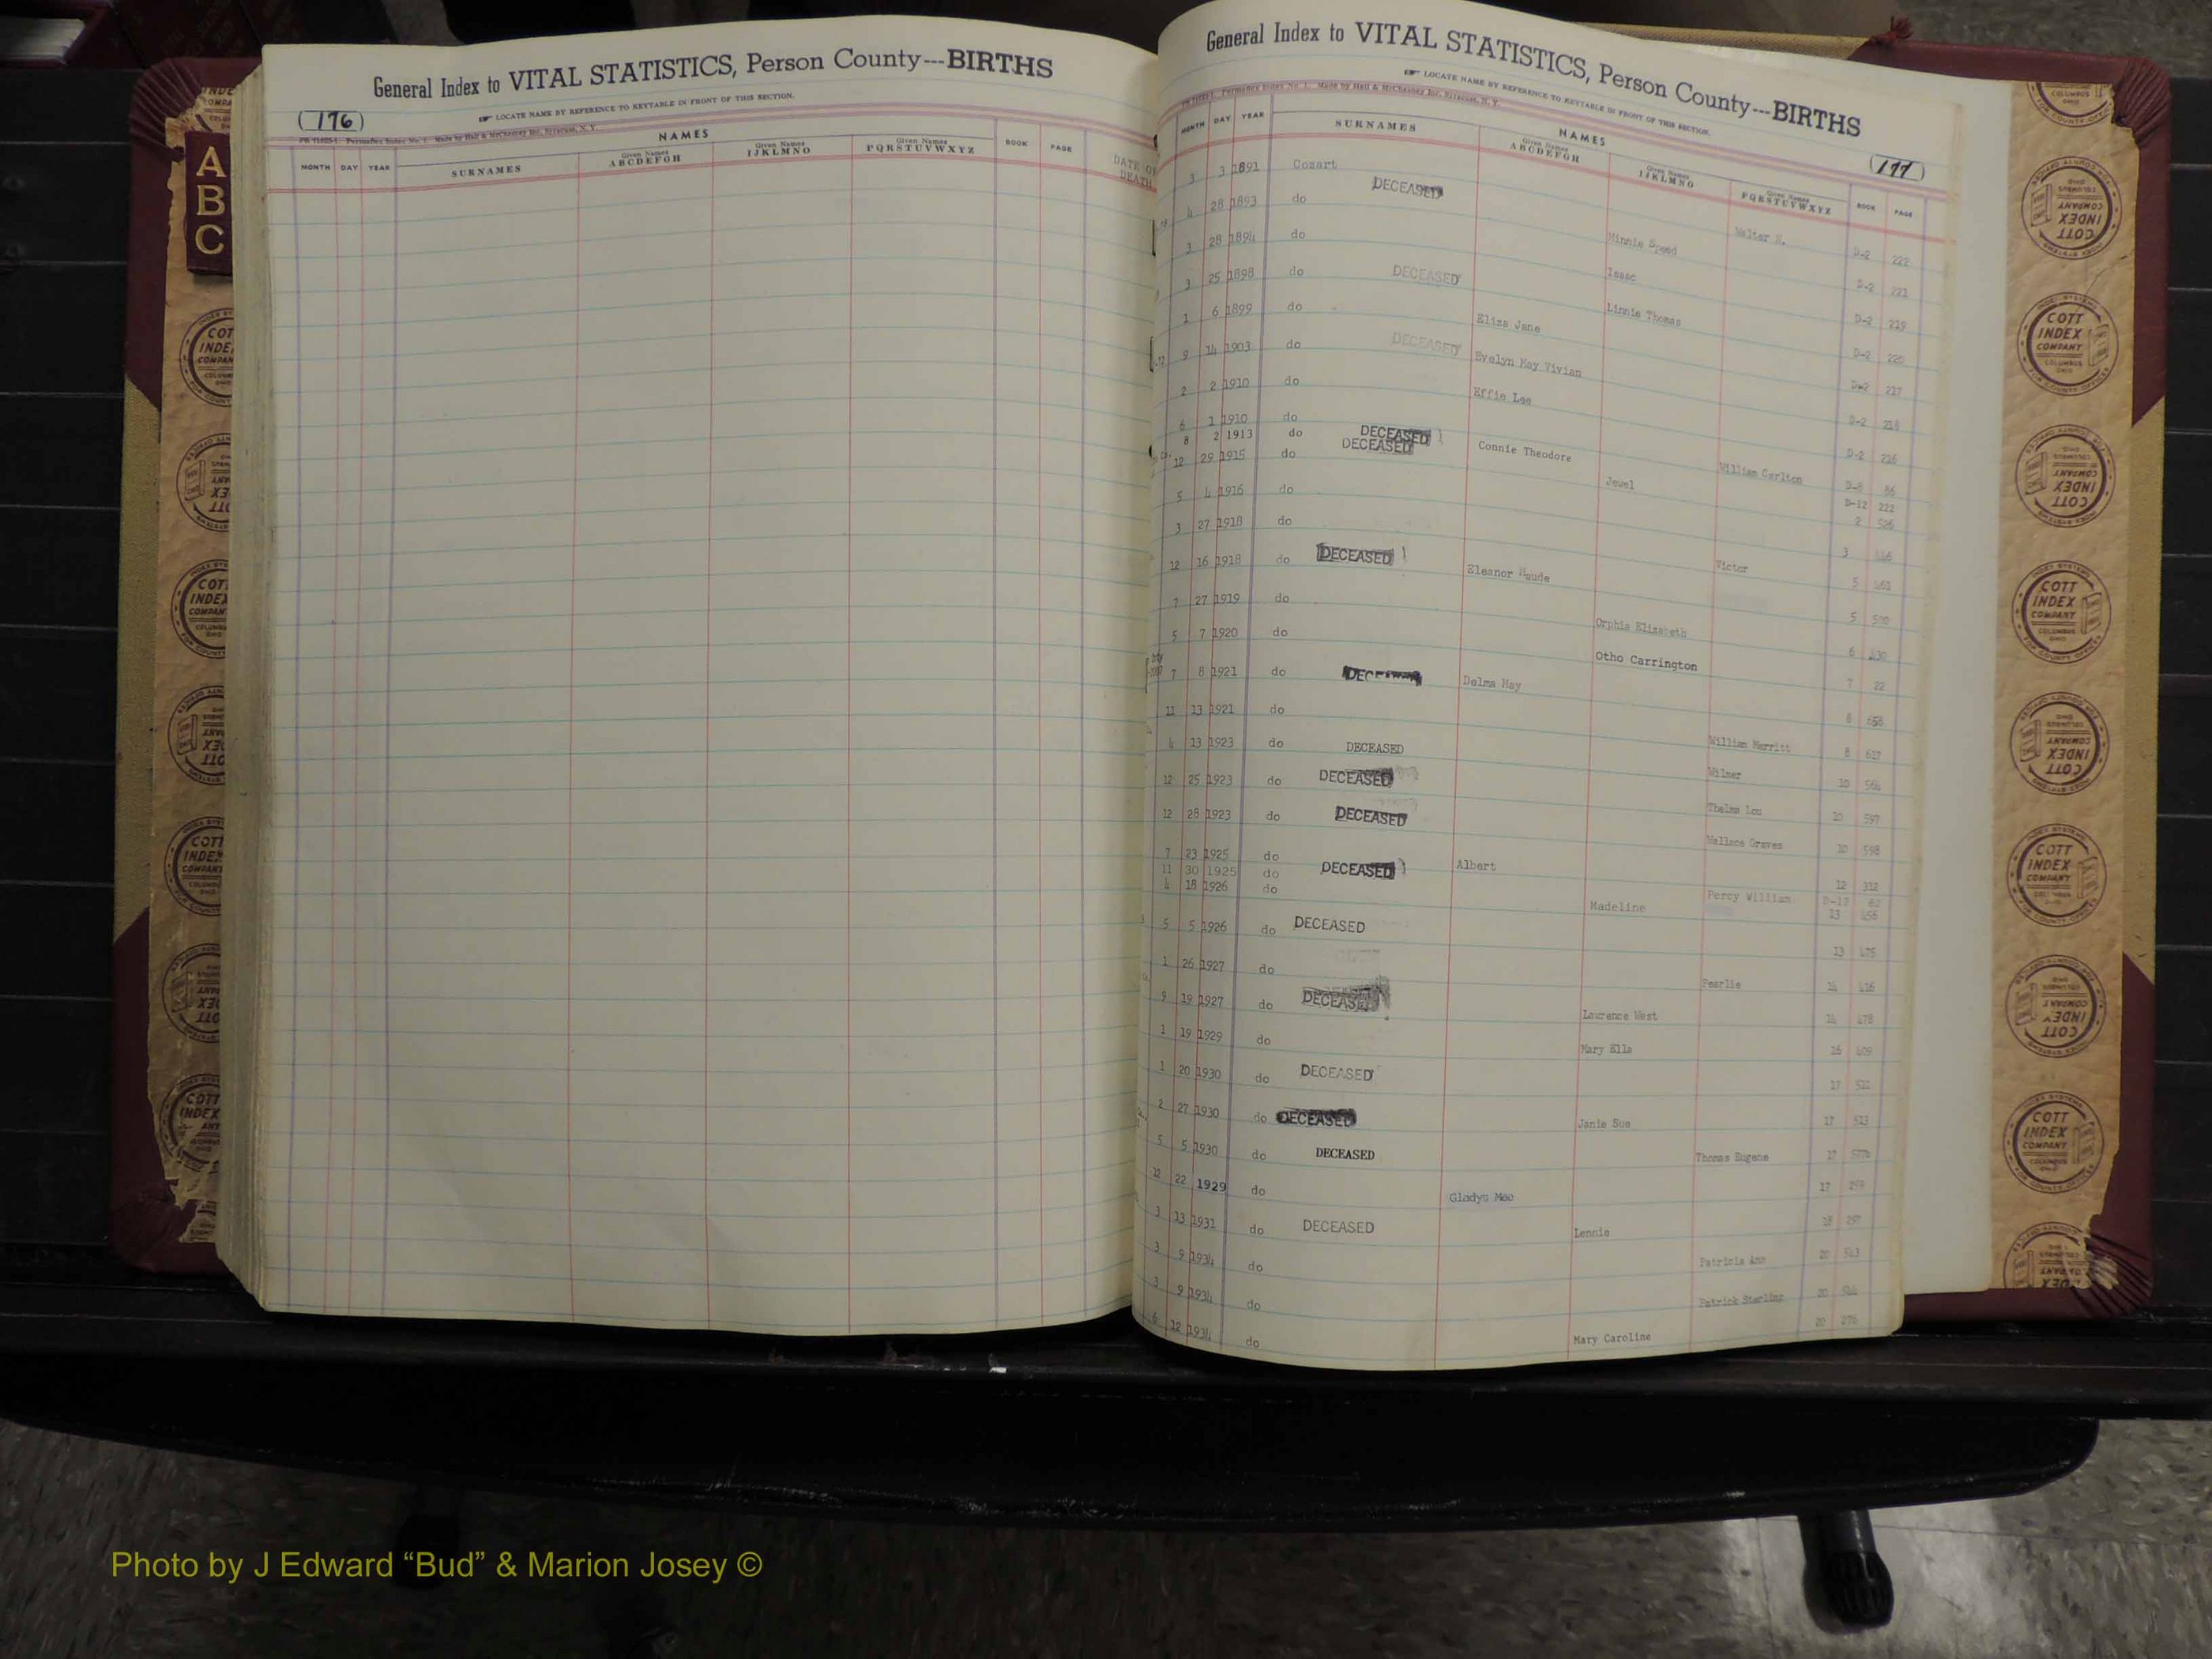 General Index to VITAL STATISTICS, Person County---BIRTHS
☞ LOCATE NAME BY REFERENCE TO KEYTABLE IN FRONT OF THIS SECTION.
(176)
NAMES
MONTH DAY YEAR SURNAMES Given Names ABCDEFGH Given Names IJKLMNO Given Names PQRSTUVWXYZ BOOK PAGE DATE OF DEATH
A
B
C
General Index to VITAL STATISTICS, Person County---BIRTHS
☞ LOCATE NAME BY REFERENCE TO KEYTABLE IN FRONT OF THIS SECTION.
(177)
NAMES
MONTH DAY YEAR SURNAMES Given Names ABCDEFGH Given Names IJKLMNO Given Names PQRSTUVWXYZ BOOK PAGE
3 3 1891 Cozart DECEASED Walter D-2 222
4 28 1893 do Minnie Speed D-2 221
3 28 1894 do Isaac D-2 219
3 25 1898 do DECEASED Linnie Thomas D-2 220
1 6 1899 do Eliza Jane D-2 217
9 14 1903 do DECEASED Evelyn May Vivian D-2 218
2 2 1910 do Effie Lee D-2 216
6 1 1910 do DECEASED William Carlton D-8 86
8 2 1913 do DECEASED Connie Theodore D-12 222
12 29 1915 do Jewel 2 526
5 4 1916 do 3
3 27 1918 do Victor 5 461
12 16 1918 do DECEASED Eleanor Maude 5
7 27 1919 do Orphia Elizabeth 6 430
5 7 1920 do Otho Carrington 7 22
7 8 1921 do Delma May 8 658
11 13 1921 do William Merritt 8 617
4 13 1923 do DECEASED Wilmer 10 564
12 25 1923 do DECEASED Thelma Lou 10 597
12 28 1923 do DECEASED Wallace Graves 10 598
7 23 1925 do DECEASED Albert 12 312
11 30 1925 do Percy William D-12 62
4 18 1926 do Madeline 13 456
5 5 1926 do DECEASED 13 475
1 26 1927 do Pearlie 14 416
9 19 1927 do DECEASED Lawrence West 14 478
1 19 1929 do Mary Ella 16 409
1 20 1930 do DECEASED 17
2 27 1930 do DECEASED Janie Sue 17 513
5 5 1930 do DECEASED Thomas Eugene 17
12 22 1929 do Gladys Mae 17
3 13 1931 do DECEASED Lennie 18 297
3 9 1934 do Patricia Ann 20 543
3 9 1934 do Patrick Sterling 20 544
6 12 1934 do Mary Caroline 20 276
COTT INDEX COMPANY
COLUMBUS OHIO
INDEX SYSTEMS
FOR COUNTY OFFICES
Photo by J Edward “Bud” & Marion Josey ©